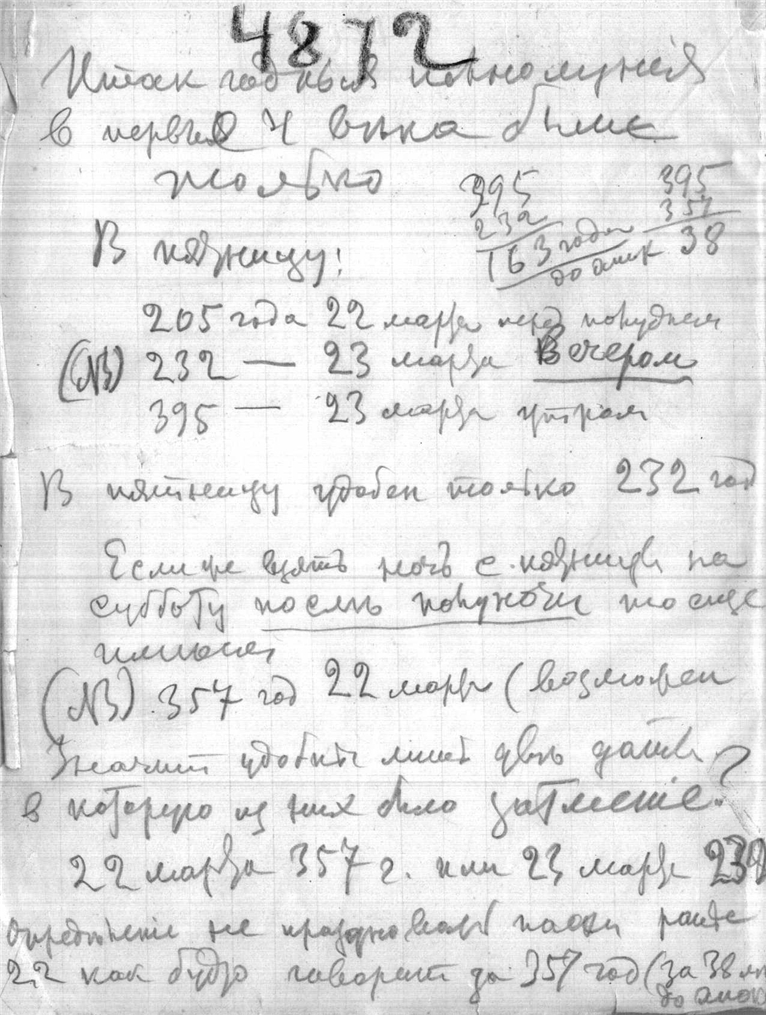 4872
Итак годныя полнолунія
в первые 4 века были
только
395 395
232 357
163 года 38
до
В пятницу:
205 года 22 марта перед полуднем
(NB) 232 — 23 марта Вечером
395 — 23 марта утром
В пятницу удобен только 232 год
Если же взять ночь с пятницы на
субботу после полуночи то еще
имеется
(NB) 357 год 22 марта (возможен
Значит удобны лишь две даты,
в которую из них было затмение?
22 марта 357 г. или 23 марта 232
Определение не праздновать пасхи ранее
22 как будто говорит за 357 год (за 38
до